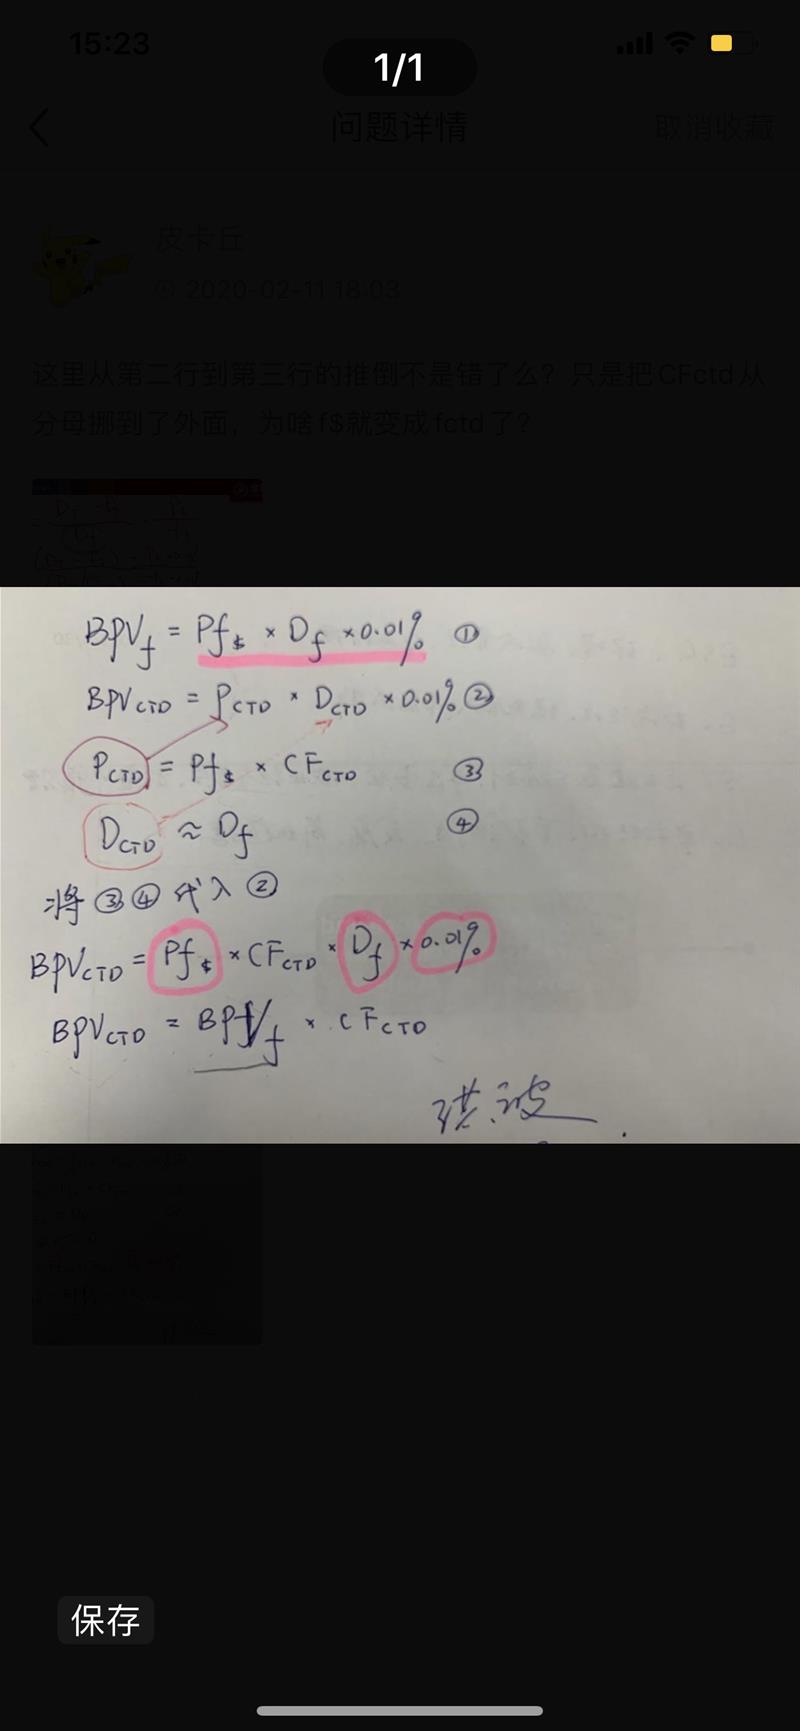 15:23
1/1
问题详情
取消收藏
皮卡丘
2020-02-11 18:03
这里从第二行到第三行的推倒不是错了么？只是把CFctd从
分母挪到了外面，为啥f$就变成fctd了？
BPV_f = Pf_$ × D_f × 0.01% ①
BPV_CTD = P_CTD × D_CTD × 0.01% ②
P_CTD = Pf_$ × CF_CTD ③
D_CTD ≈ D_f ④
将③④代入②
BPV_CTD = Pf_$ × CF_CTD × D_f × 0.01%
BPV_CTD = BPV_f × CF_CTD
保存